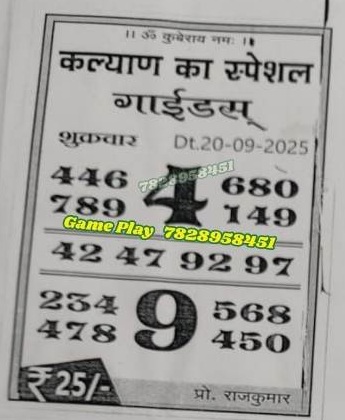 ।। ॐ कुबेराय नमः ।।
कल्याण का स्पेशल
गाईडस्
शुक्रवार Dt.20-09-2025
446 4 680
7828958451
789 149
Game Play 7828958451
42 47 92 97
234 9 568
478 450
₹ 25/- प्रो. राजकुमार